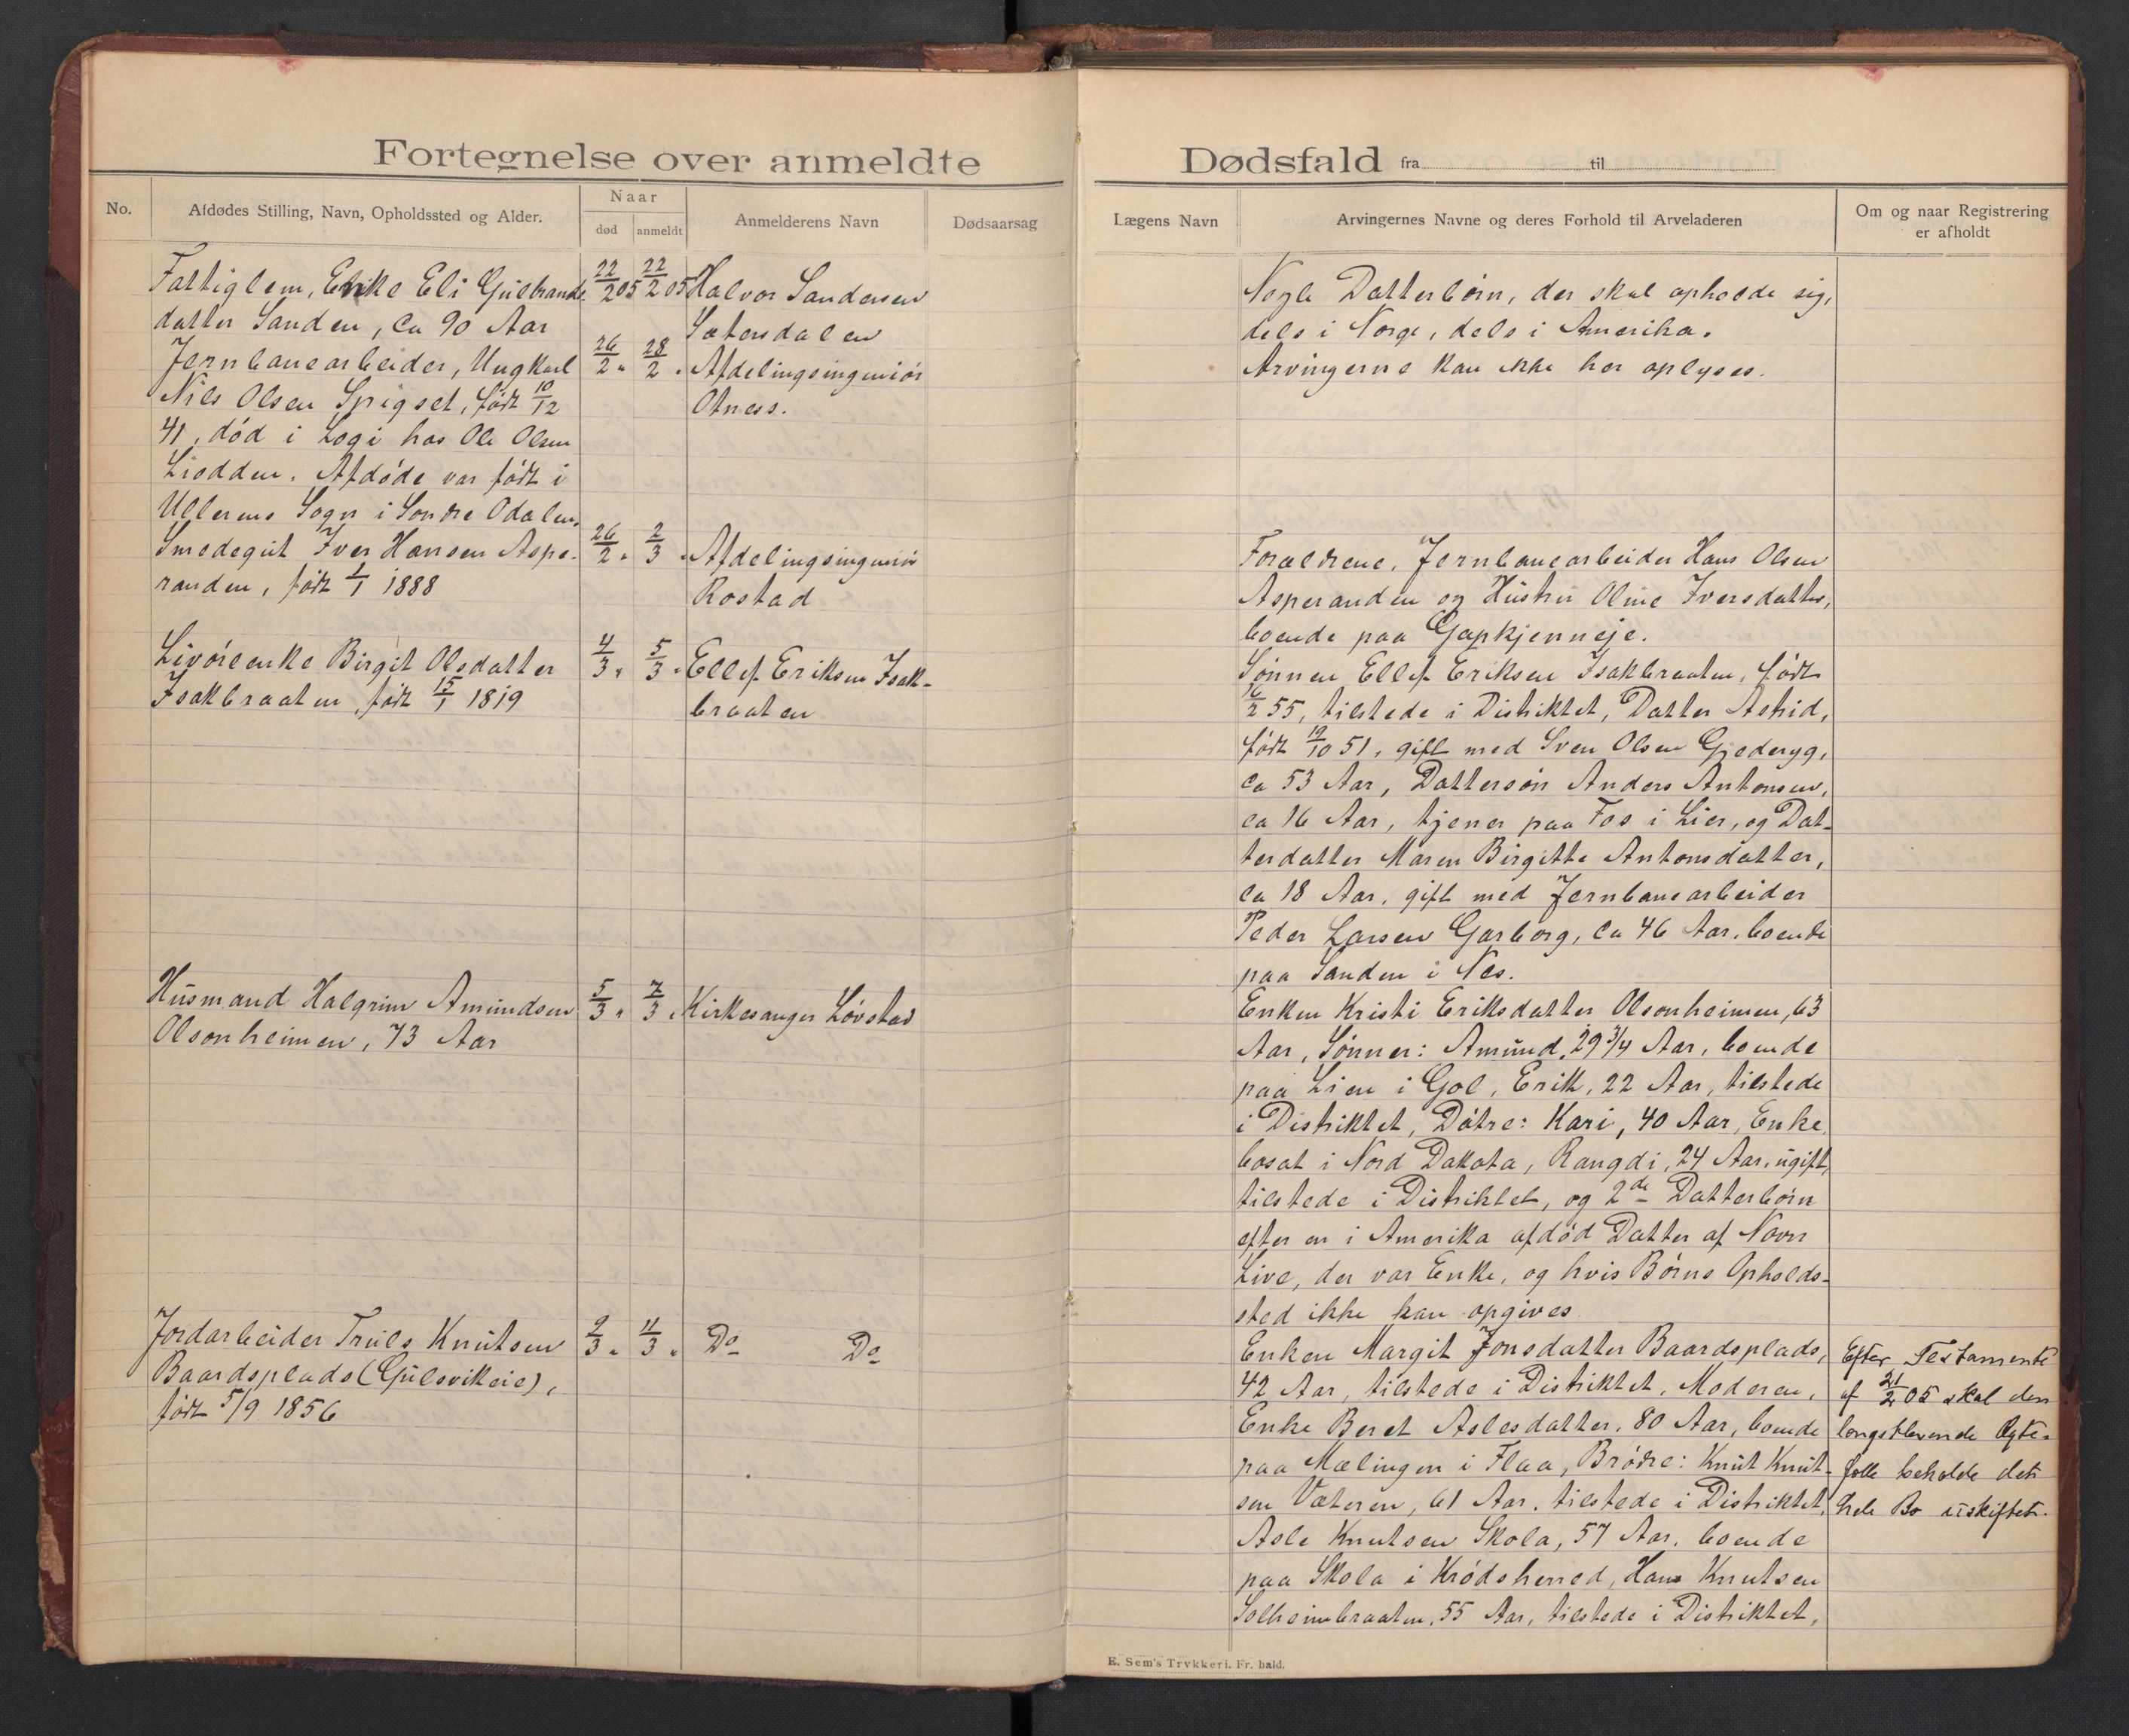 Fortegnelse over anmeldte
No.
Afdødes Stilling, Navn, Opholdssted og Alder.
Naar
død
anmeldt
Anmelderens Navn
Dødsaarsag
Fattiglem, Enke Eli Gulbrands
datter Sanden, ca 90 Aar
22/2 05
22/2 05
Halvor Sandersen
Sætersdalen
Jernbanearbeider, Ungkarl
Nils Olsen Spigset, født 10/12
41, død i Logi hos Ole Olsen
Liodden. Afdøde var født i
Ullerens Sogn i Søndre Odalen.
26/2 "
28/2 "
Afdelingsingeniør
Otness.
Smedegut Iver Hansen Aspe-
randen, født 1/1 1888
26/2 "
2/3 "
Afdelingsingeniør
Rostad
Livøreenke Birgit Olsdatter
Isakbraaten, født 15/1 1819
4/3 "
5/3 "
Ellef Eriksen Isak-
braaten
Husmand Halgrim Amundsen
Olsonheimen, 73 Aar
5/3 "
7/3 "
Kirkesanger Løvstad
Jordarbeider Truls Knutsen
Baardsplads (Gulsvikeie),
født 5/9 1856
9/3 "
11/3 "
Do Do
Dødsfald fra til
Lægens Navn
Arvingernes Navne og deres Forhold til Arveladeren
Om og naar Registrering
er afholdt
Nogle Datterbørn, der skal opholde sig,
dels i Norge, dels i Amerika.
Arvingerne kan ikke her oplyses.
Forældrene, Jernbanearbeider Hans Olsen
Asperanden og Hustru Oline Iversdatter,
boende paa Gapkjenneje.
Sønnen Ellef Eriksen Isakbraaten, født
16/2 55, tilstede i Distriktet, Datter Astrid,
født 19/10 51, gift med Sven Olsen Gjederyg,
ca 53 Aar, Dattersøn Anders Antonsen,
ca 16 Aar, tjener paa Fos i Lier, og Dat-
terdatter Maren Birgitte Antonsdatter,
ca 18 Aar, gift med Jernbanearbeider
Peder Larsen Garborg, ca 46 Aar, boende
paa Sanden i Nes.
Enken Kristi Eriksdatter Olsonheimen, 63
Aar, Sønner: Amund, 29 3/4 Aar, boende
paa Lien i Gol, Erik, 22 Aar, tilstede
i Distriktet, Døtre: Kari, 40 Aar, Enke,
bosat i Nord Dakota, Rangdi, 24 Aar, ugift,
tilstede i Distriktet, og 2de Datterbørn
efter en i Amerika afdød Datter af Navn
Live, der var Enke, og hvis Børns Opholds-
sted ikke kan opgives.
Enken Margit Jonsdatter Baardsplads,
42 Aar, tilstede i Distriktet, Moderen,
Enke Beret Aslesdatter, 80 Aar, boende
paa Mælingen i Flaa, Brødre: Knut Knut-
sen Væteren, 61 Aar, tilstede i Distriktet,
Asle Knutsen Skola, 57 Aar, boende
paa Skola i Krødsherred, Hans Knutsen
Solheimbraaten, 55 Aar, tilstede i Distriktet,
Efter Testamente
af 21/2 05 skal den
længstlevende Ægte-
fælle beholde det
hele Bo uskiftet.
E. Sem's Trykkeri. Fr. hald.